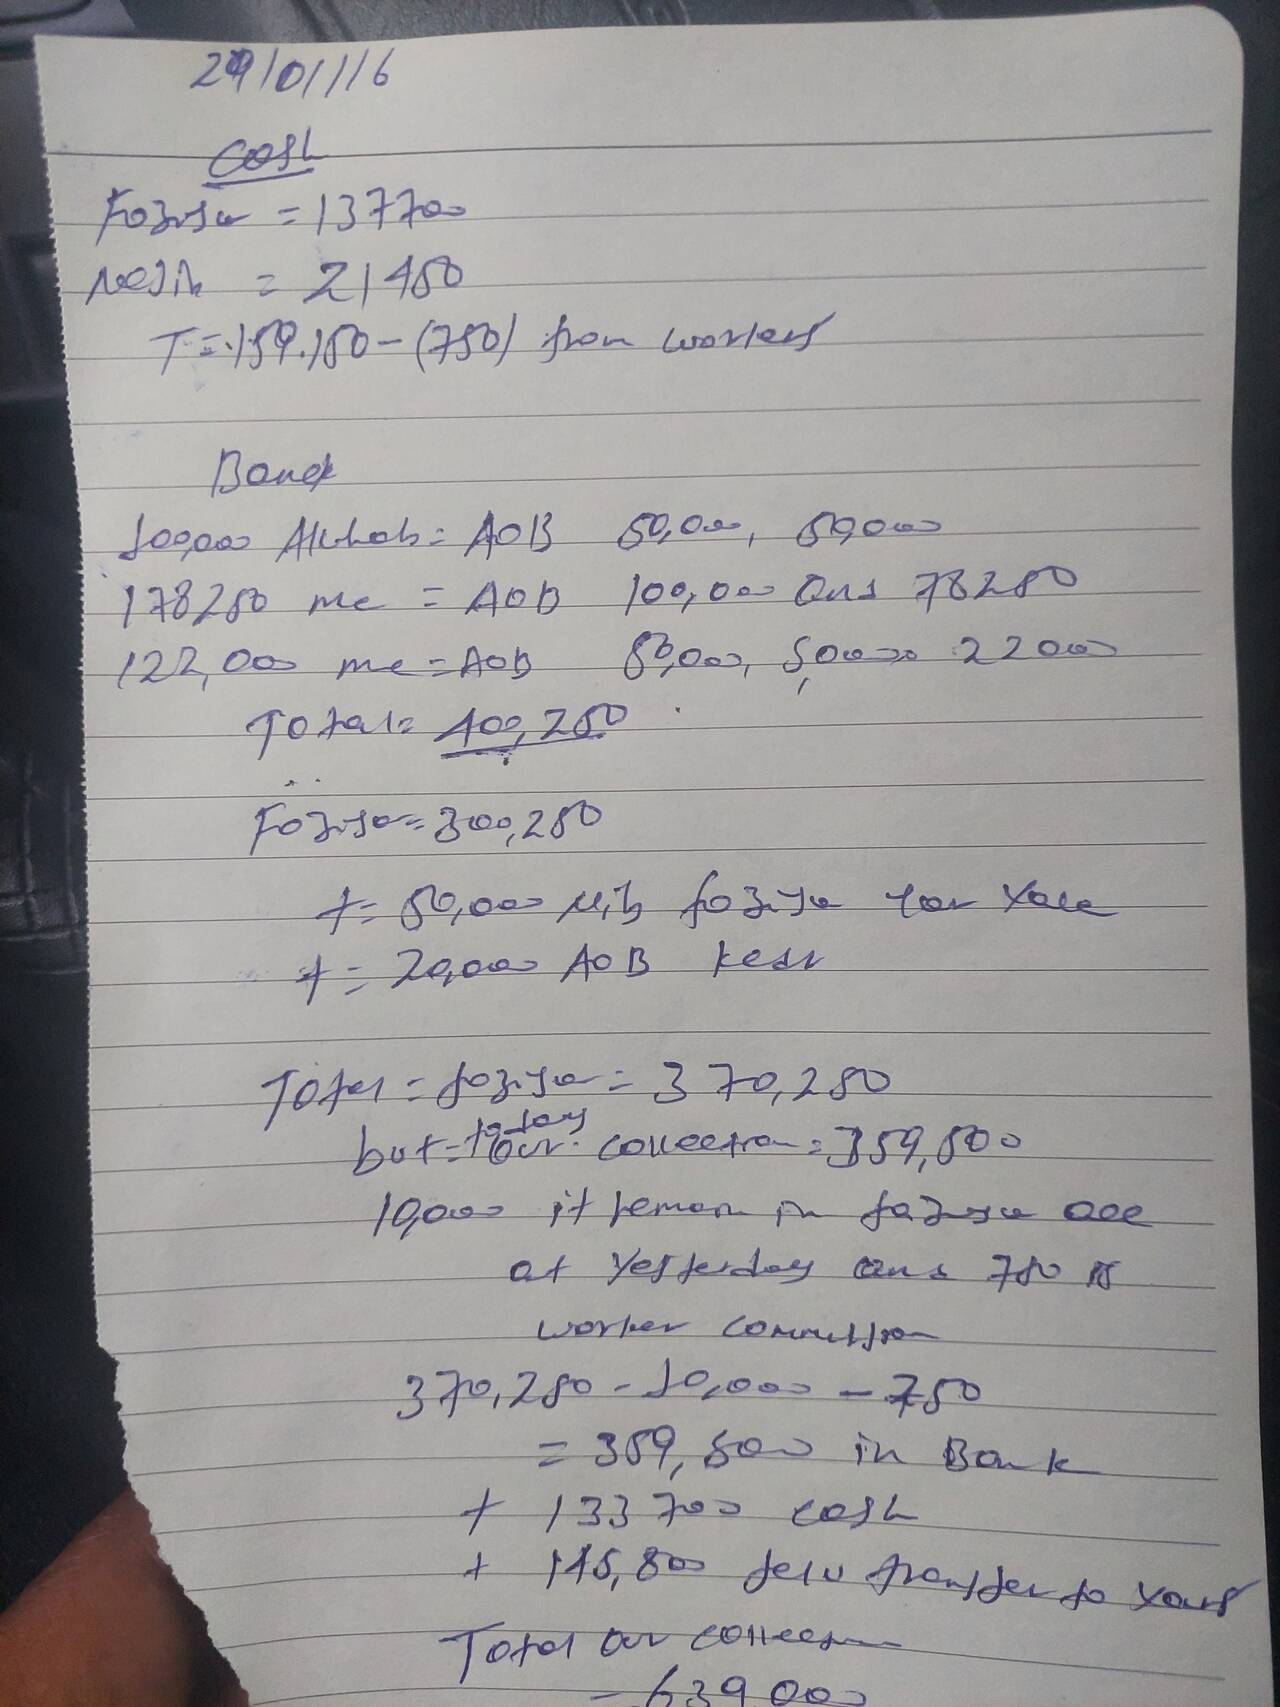 29/01/16
Cash
Foziya = 137700
Nesih = 21450
T = 159.150 - (750) from workers
Bank
100,000 = AOB 50,000, 50,000
178250 me = AOB 100,000 and 78250
122,000 me = AOB 50,000, 50000 22000
Total = 400,250
Foziya = 300,250
+ = 50,000 Nib foziya
+ = 20,000 AOB
Total = foziya = 370,250
today
but = our collection = 359,500
10,000 it reman in foziya acc
at yesterday and 750 is
worker commission
370,250 - 10,000 - 750
= 359,500 in Bank
+ 133700 cash
+ 145,800 transfer to
Total our collection
= 639,000